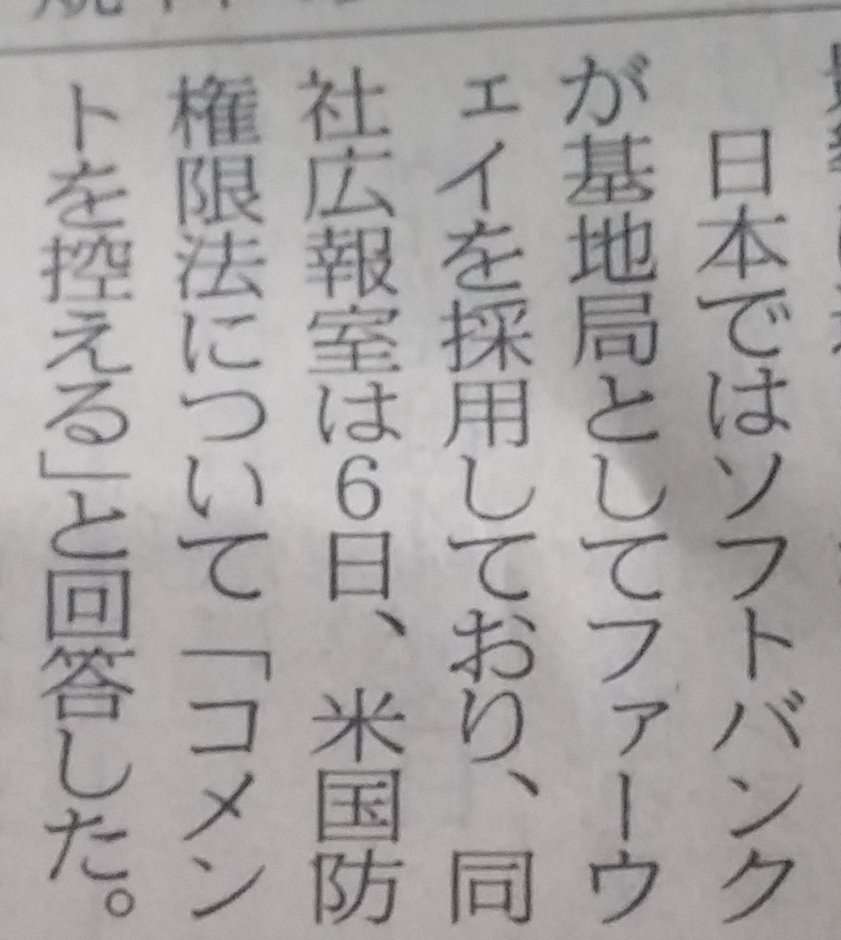 日本ではソフトバンク
が基地局としてファーウ
ェイを採用しており、同
社広報室は6日、米国防
権限法について「コメン
トを控える」と回答した。